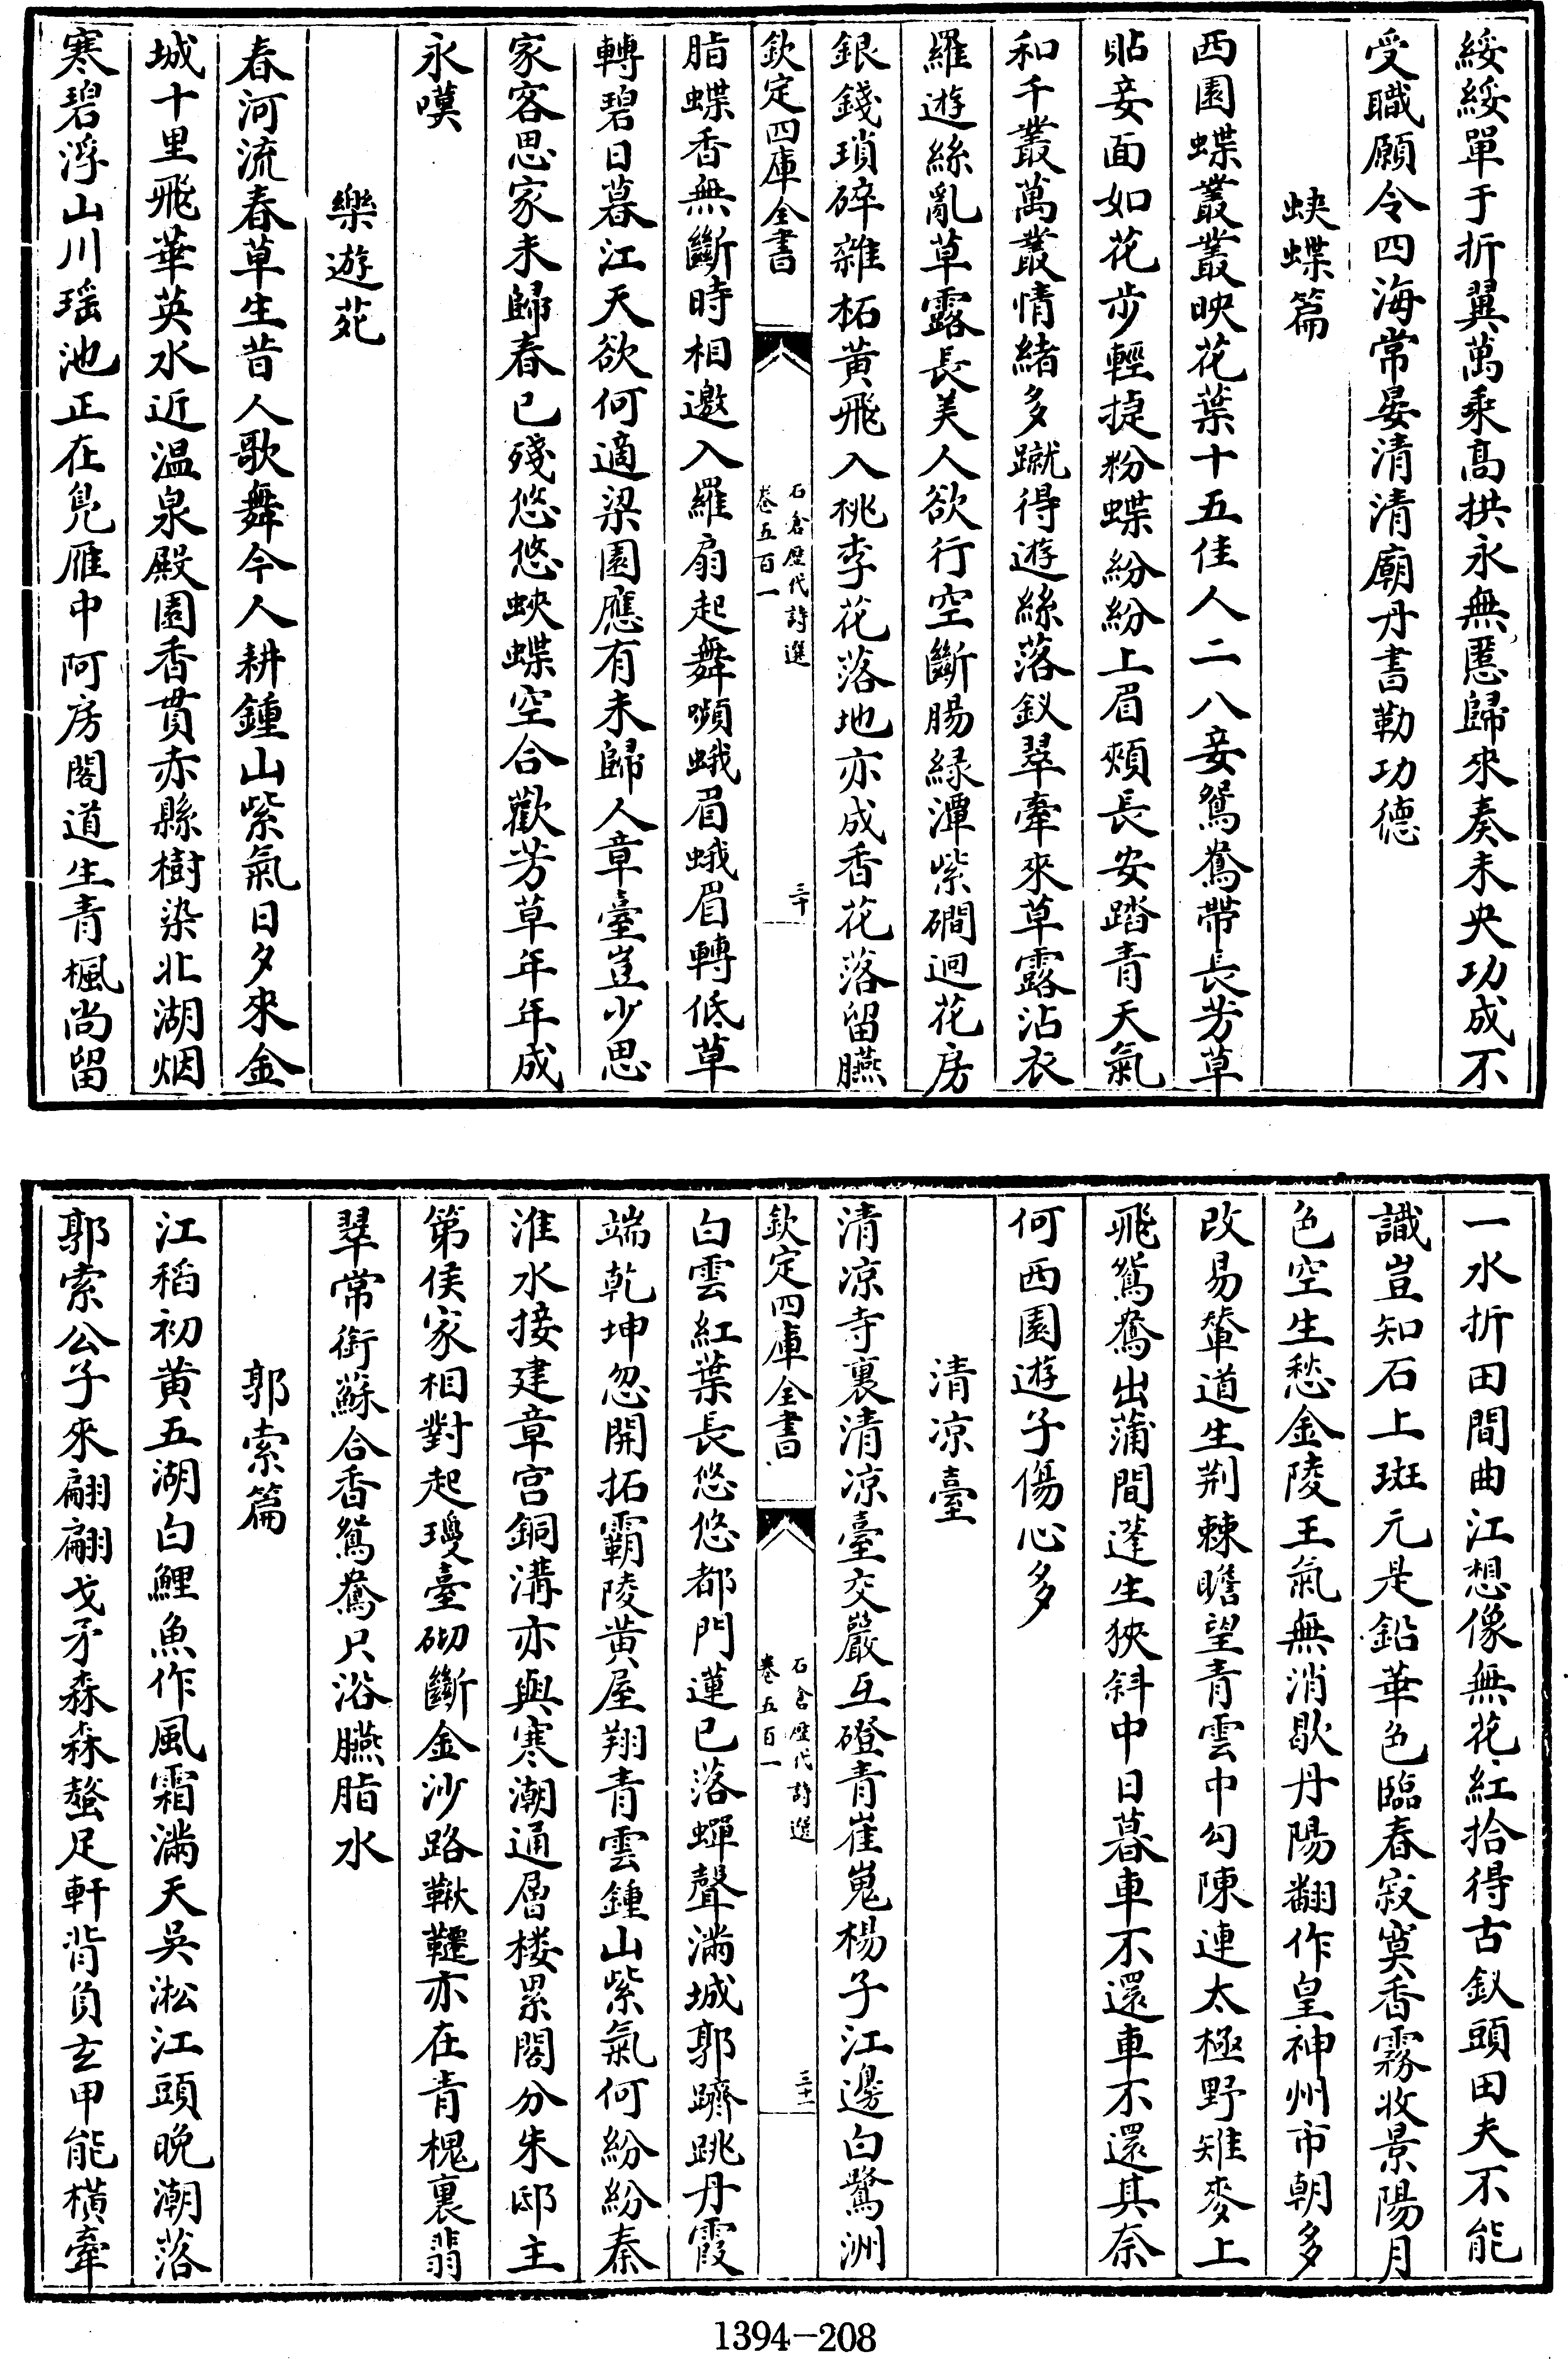 綏綏單于折翼萬乘高拱永無慝歸來奏未央功成不
受職願令四海常晏清清廟丹書勒功德
蛺蝶篇
西園蝶叢叢映花葉十五佳人二八妾鴛鴦帶長芳草
貼妾面如花步輕捷粉蝶紛紛上眉頰長安踏青天氣
和千叢萬叢情緒多蹴得遊絲落釵翠牽來草露沾衣
羅遊絲亂草露長美人欲行空斷腸緑潭紫磵迴花房
銀錢瑣碎雜柘黄飛入桃李花落地亦成香花落留臙
欽定四庫全書
石倉歴代詩選
卷五百一
三十
脂蝶香無斷時相邀入羅扇起舞嚬蛾眉蛾眉轉低草
轉碧日暮江天欲何適梁園應有未歸人章臺豈少思
家客思家未歸春已殘悠悠蛺蝶空合歡芳草年年成
永嘆
樂遊苑
春河流春草生昔人歌舞今人耕鍾山紫氣日夕來金
城十里飛華英水近温泉殿園香貫赤縣樹染北湖烟
寒碧浮山川瑶池正在鳬雁中阿房閣道生青楓尚留
一水折田間曲江想像無花紅拾得古釵頭田夫不能
識豈知石上斑元是鉛華色臨春寂寞香霧收景陽月
色空生愁金陵王氣無消歇丹陽翻作皇神州市朝多
改易輦道生荆棘瞻望青雲中勾陳連太極野雉麥上
飛鴛鴦出蒲間蓬生狹斜中日暮車不還車不還其奈
何西園遊子傷心多
清凉臺
清凉寺裏清凉臺交巖互磴青崔嵬楊子江邊白鷺洲
欽定四庫全書
石倉歴代詩選
卷五百一
三十一
白雲紅葉長悠悠都門蓮已落蟬聲滿城郭躋跳丹霞
端乾坤忽開拓霸陵黄屋翔青雲鍾山紫氣何紛紛秦
淮水接建章宫銅溝亦與寒潮通層楼累閣分朱邸主
第侯家相對起瓊臺砌斷金沙路鞦韆亦在青槐裏翡
翠常銜蘇合香鴛鴦只浴臙脂水
郭索篇
江稻初黄五湖白鯉魚作風霜滿天吳淞江頭晚潮落
郭索公子來翩翩戈矛森森螯足軒背負玄甲能横牽
1394-208